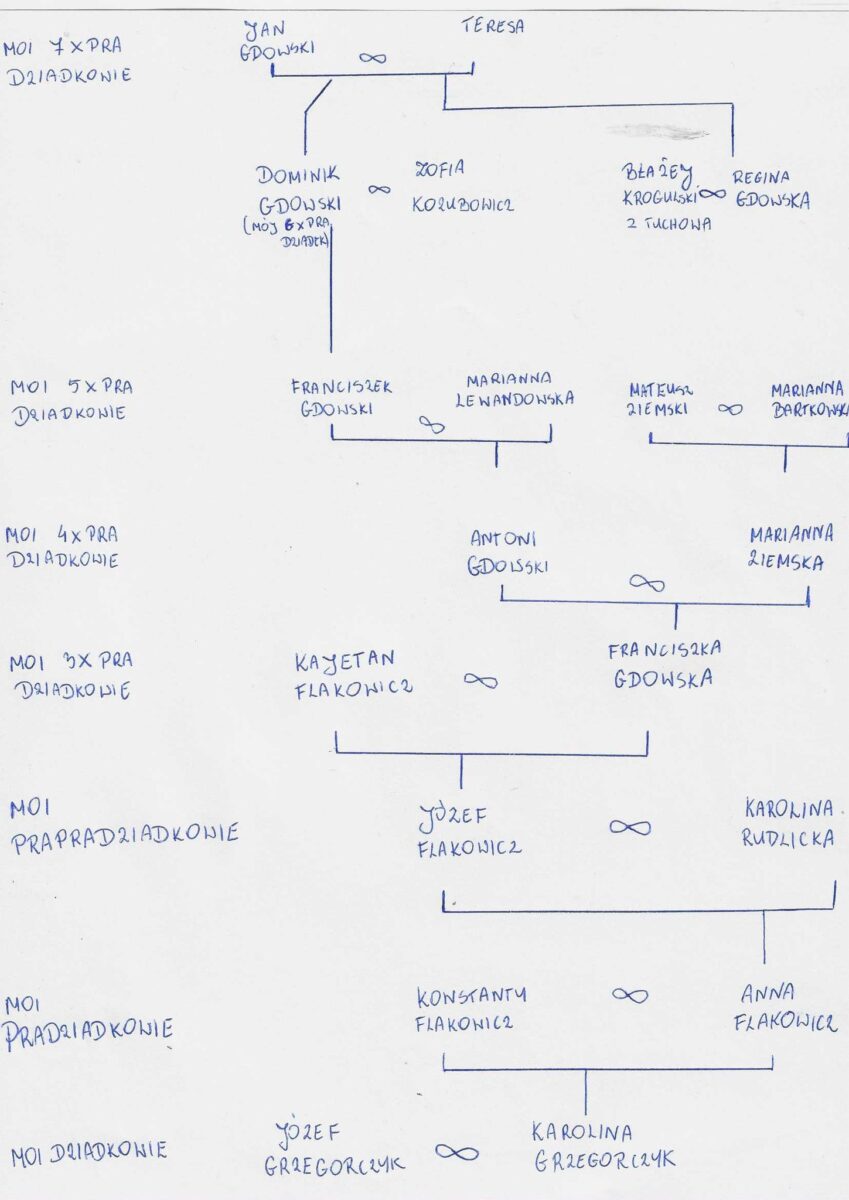 MOI 7 X PRA
DZIADKOWIE
JAN
GDOWSKI
∞
TERESA
DOMINIK
GDOWSKI
(MÓJ 6 X PRA
DZIADEK)
∞
ZOFIA
KOZUBOWICZ
BŁAŻEY
KROGULSKI
Z TUCHOWA
∞
REGINA
GDOWSKA
MOI 5 X PRA
DZIADKOWIE
FRANCISZEK
GDOWSKI
∞
MARIANNA
LEWANDOWSKA
MATEUSZ
ZIEMSKI
∞
MARIANNA
BARTKOWSK
MOI 4 X PRA
DZIADKOWIE
ANTONI
GDOWSKI
∞
MARIANNA
ZIEMSKA
MOI 3X PRA
DZIADKOWIE
KAJETAN
FLAKOWICZ
∞
FRANCISZKA
GDOWSKA
MOI
PRAPRADZIADKOWIE
JÓZEF
FLAKOWICZ
∞
KAROLINA
RUDLICKA
MOI
PRADZIADKOWIE
KONSTANTY
FLAKOWICZ
∞
ANNA
FLAKOWICZ
MOI DZIADKOWIE
JÓZEF
GRZEGORCZYK
∞
KAROLINA
GRZEGORCZYK